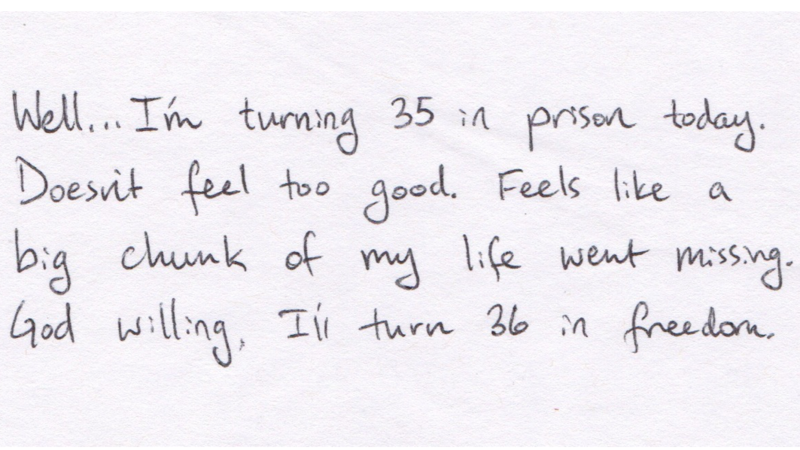 Well... I'm turning 35 in prison today.
Doesn't feel too good. Feels like a
big chunk of my life went missing.
God willing, I'll turn 36 in freedom.